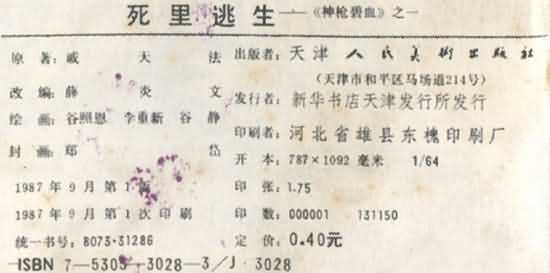 死里逃生——《神枪碧血》之一
原著：戚天法
改编：薛炎文
绘画：谷照恩 李重新 谷静
封画：郑岱
1987年9月第1版
1987年9月第1次印刷
统一书号：8073·31286
ISBN 7—5305—3028—3/J·3028
出版者：天津人民美術出版社
（天津市和平区马场道214号）
发行者：新华书店天津发行所发行
印刷者：河北省雄县东槐印刷厂
开本：787×1092毫米 1/64
印张：1.75
印数：000001 131150
定价：0.40元